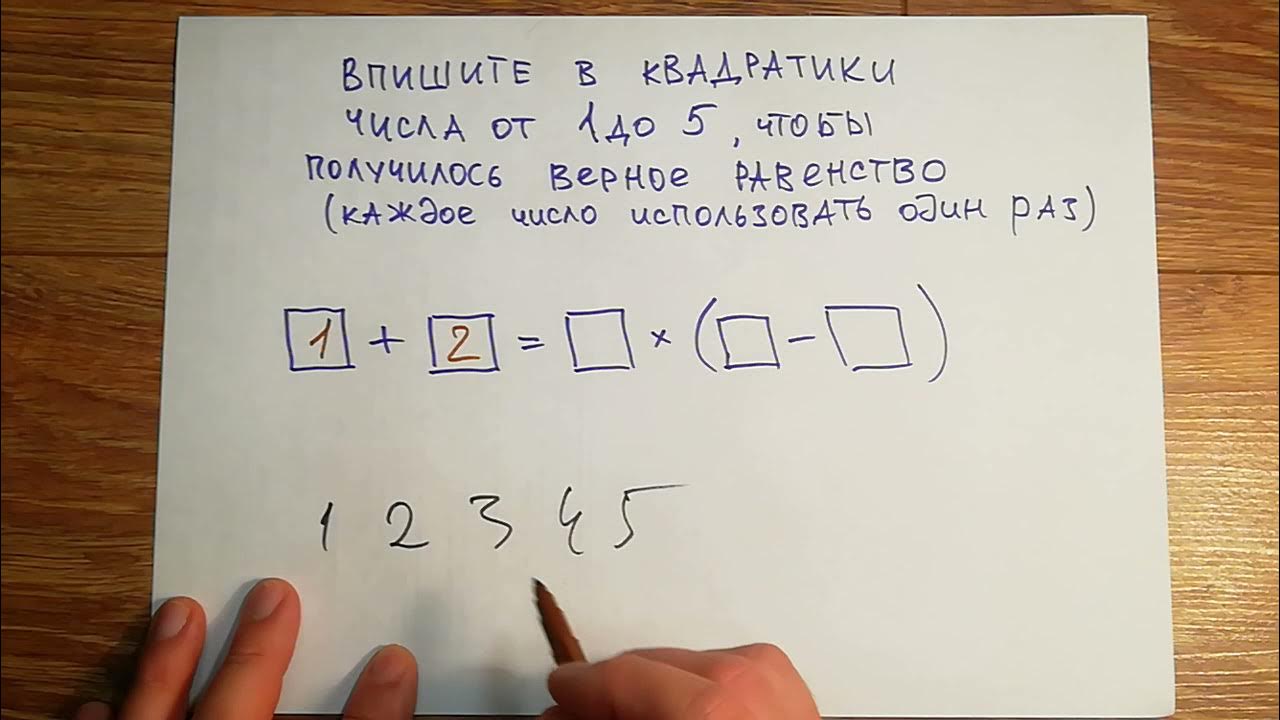 ВПИШИТЕ В КВАДРАТИКИ
ЧИСЛА ОТ 1 ДО 5, ЧТОБЫ
ПОЛУЧИЛОСЬ ВЕРНОЕ РАВЕНСТВО
(КАЖДОЕ ЧИСЛО ИСПОЛЬЗОВАТЬ ОДИН РАЗ)
1 + 2 = □ × (□ - □)
1 2 3 4 5